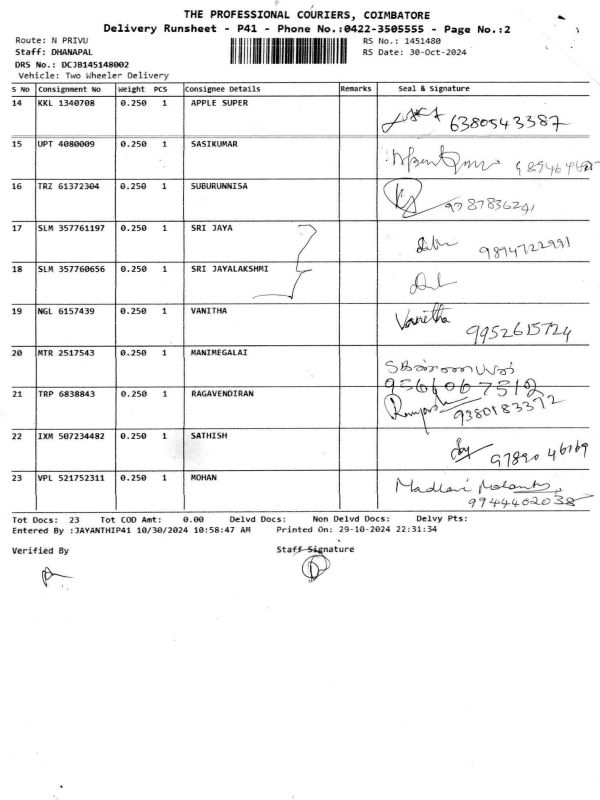 THE PROFESSIONAL COURIERS, COIMBATORE
Delivery Runsheet - P41 - Phone No.:0422-3505555 - Page No.:2
Route: N PRIVU RS No.: 1451480
Staff: DHANAPAL RS Date: 30-Oct-2024
DRS No.: DCJB145148002
Vehicle: Two Wheeler Delivery
S No Consignment No Weight PCS Consignee Details Remarks Seal & Signature
14 KKL 1340708 0.250 1 APPLE SUPER 6380543387
15 UPT 4080009 0.250 1 SASIKUMAR
16 TRZ 61372304 0.250 1 SUBURUNNISA 9787836241
17 SLM 357761197 0.250 1 SRI JAYA 9894722991
18 SLM 357760656 0.250 1 SRI JAYALAKSHMI
19 NGL 6157439 0.250 1 VANITHA Vanitha 9952615724
20 MTR 2517543 0.250 1 MANIMEGALAI
9566067512
21 TRP 6838843 0.250 1 RAGAVENDIRAN 9380183372
22 IXM 507234482 0.250 1 SATHISH 9789046169
23 VPL 521752311 0.250 1 MOHAN
9944402038
Tot Docs: 23 Tot COD Amt: 0.00 Delvd Docs: Non Delvd Docs: Delvy Pts:
Entered By :JAYANTHIP41 10/30/2024 10:58:47 AM Printed On: 29-10-2024 22:31:34
Verified By Staff Signature